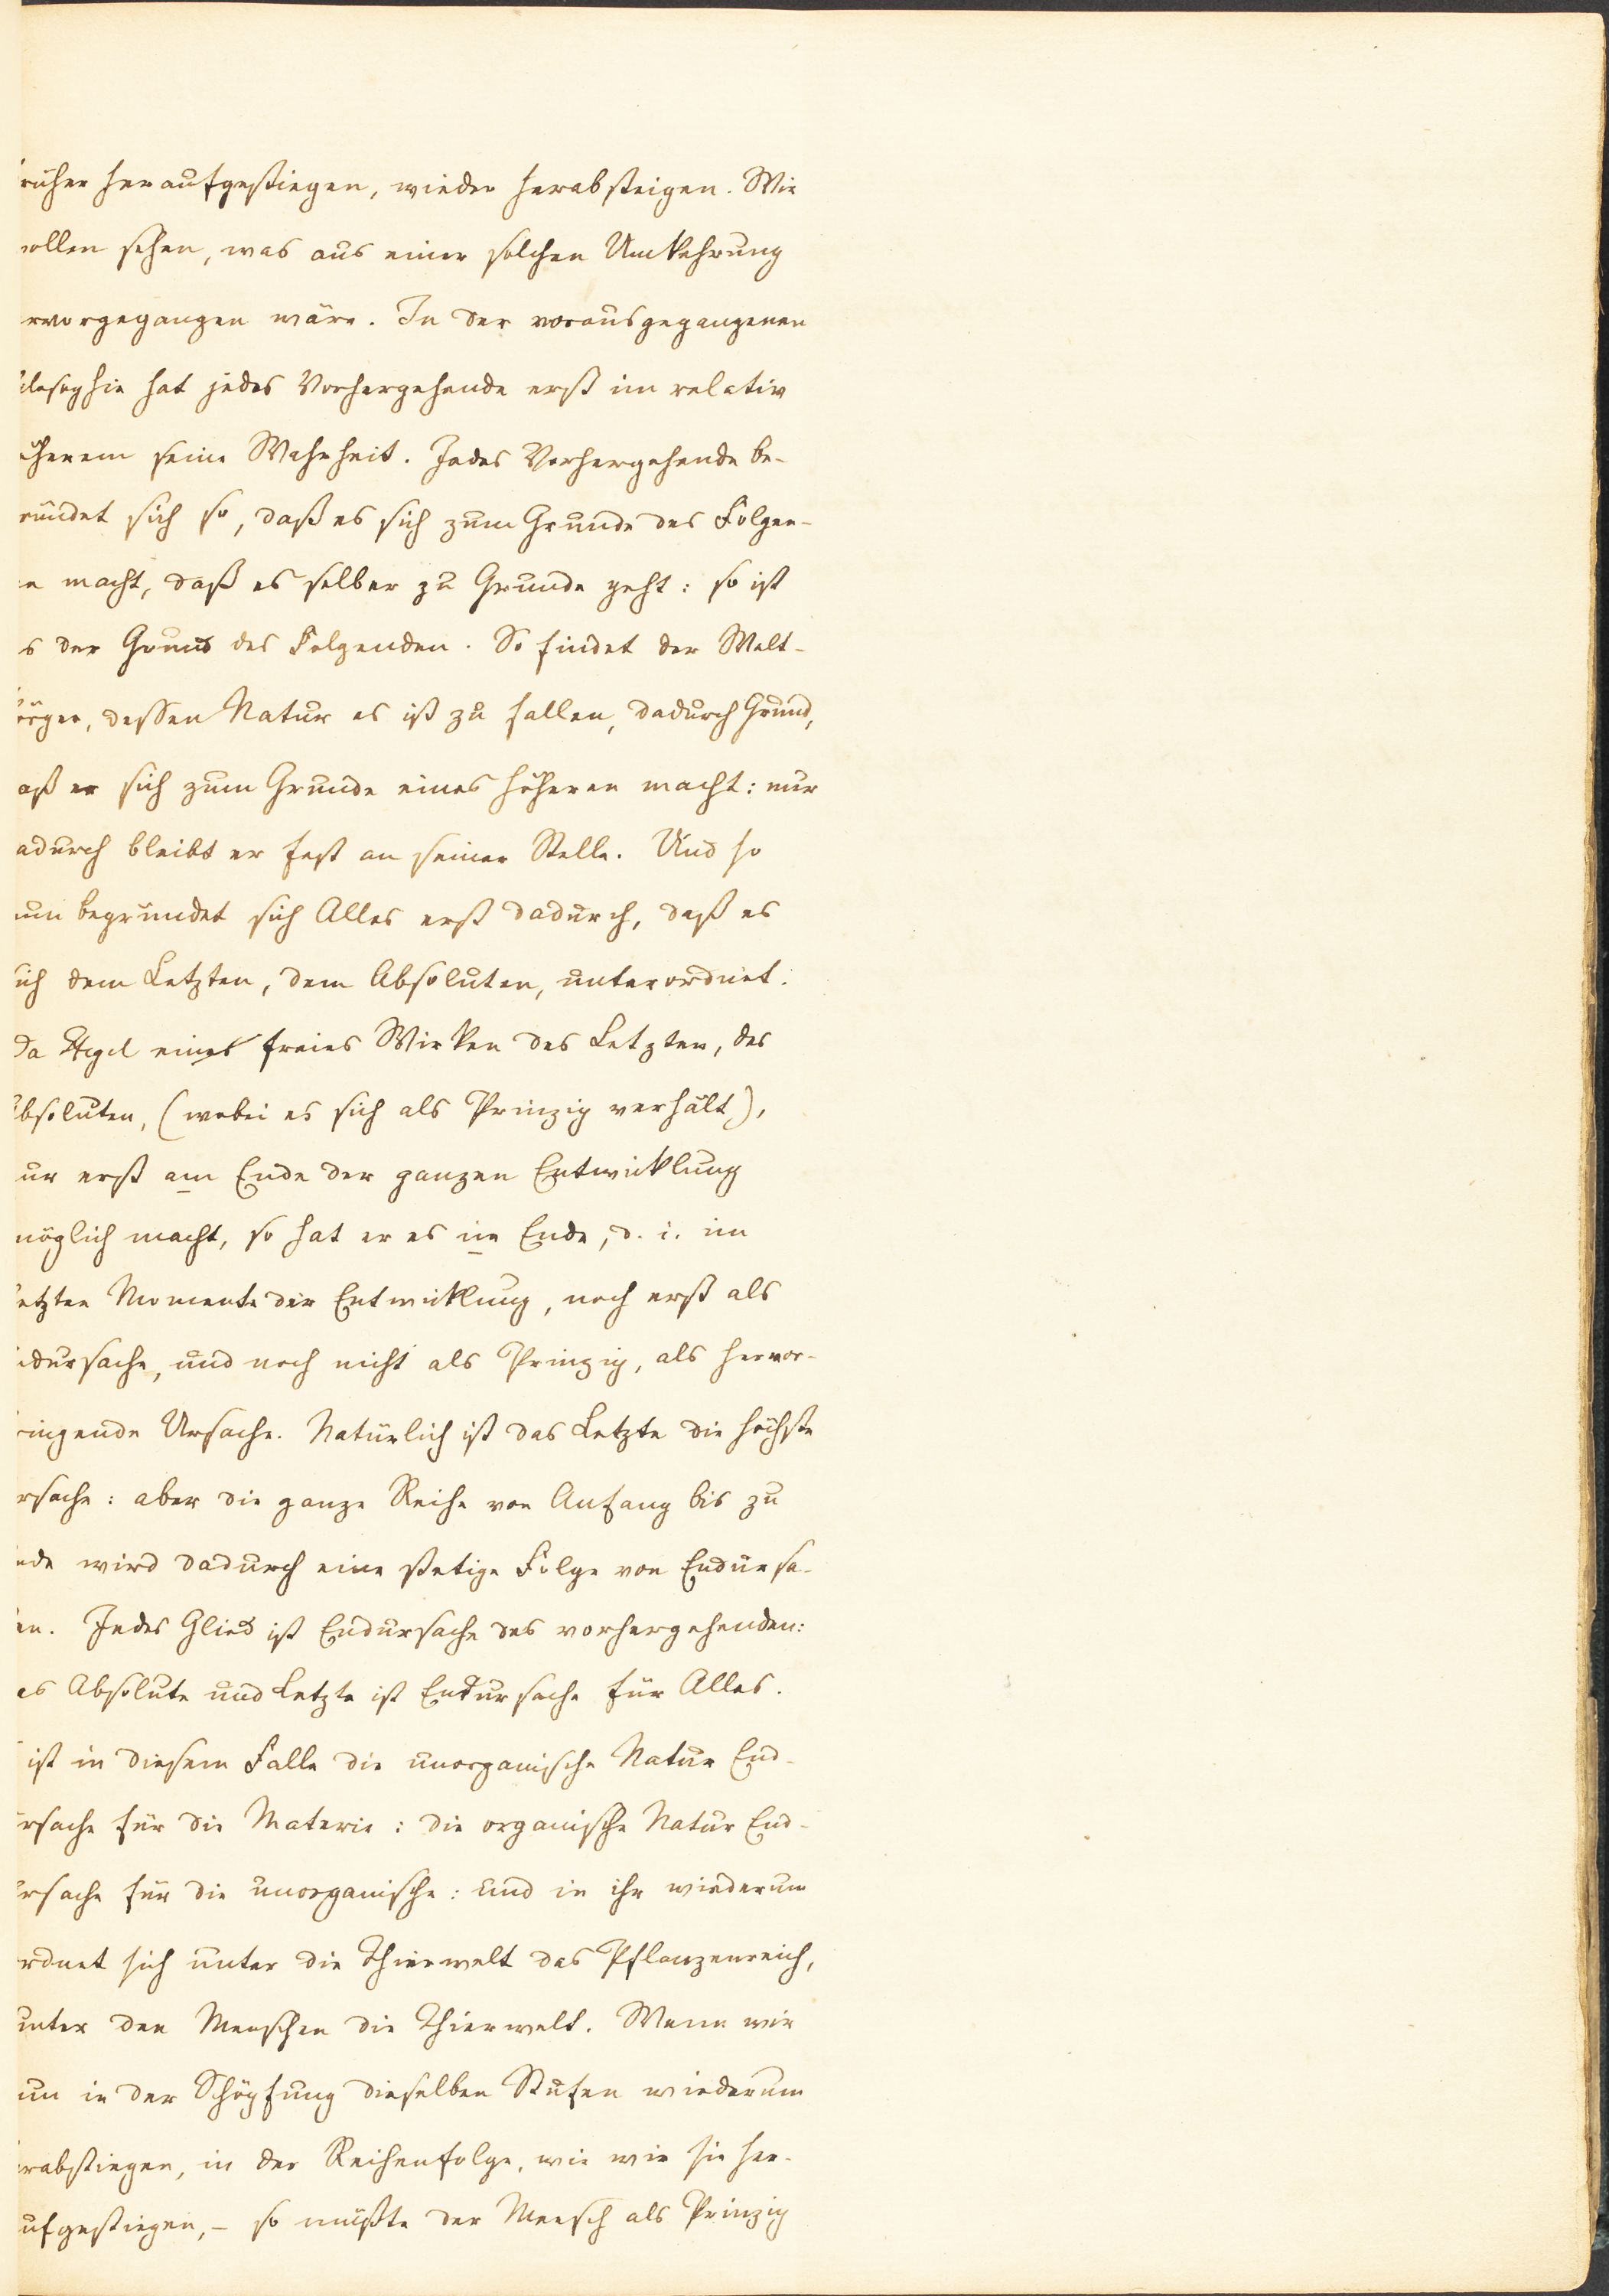 rüher heraufgestiegen, wieder herabsteigen. Wir
ollen sehen, was aus einer solchen Umkehrung
rvorgegangen wäre. In der vorausgegangenen
ilosophie hat jedes Vorhergehende erst im relativ
öherem seine Wahrheit. Jedes Vorhergehende be-
ründet sich so, daß es sich zum Grunde des Folgen-
n macht, daß es selber zu Grunde geht: so ist
s der Grund des Folgenden. So findet der Welt-
örper, dessen Natur es ist zu fallen, dadurch Grund,
aß er sich zum Grunde eines höheren macht: nur
adurch bleibt er fest an seiner Stelle. Und so
un begründet sich Alles erst dadurch, daß es
ich dem Letzten, dem Absoluten, unterordnet.
Da Hegel eines freies Wirken des Letzten, des
bsoluten, (wobei es sich als Prinzip verhält),
ur erst am Ende der ganzen Entwicklung
möglich macht, so hat er es im Ende, d. i. im
etzten Momente der Entwicklung, noch erst als
dursache, und noch nicht als Prinzip, als hervor-
ringende Ursache. Natürlich ist das Letzte die höchste
rsache: aber die ganze Reihe von Anfang bis zu
nde wird dadurch eine stetige Folge von Endursa-
en. Jedes Glied ist Endursache des vorhergehenden:
as Absolute und Letzte ist Endursache für Alles.
ist in diesem Falle die unorganische Natur End-
rsache für die Materie: die organische Natur End-
rsache für die unorganische: und in ihr wiederum
rdnet sich unter die Thierwelt das Pflanzenreich,
unter den Menschen die Thierwelt. Wenn wir
un in der Schöpfung dieselben Stufen wiederum
rabstiegen, in der Reihenfolge, wie wir sie her-
ufgestiegen, – so müßte der Mensch als Prinzip